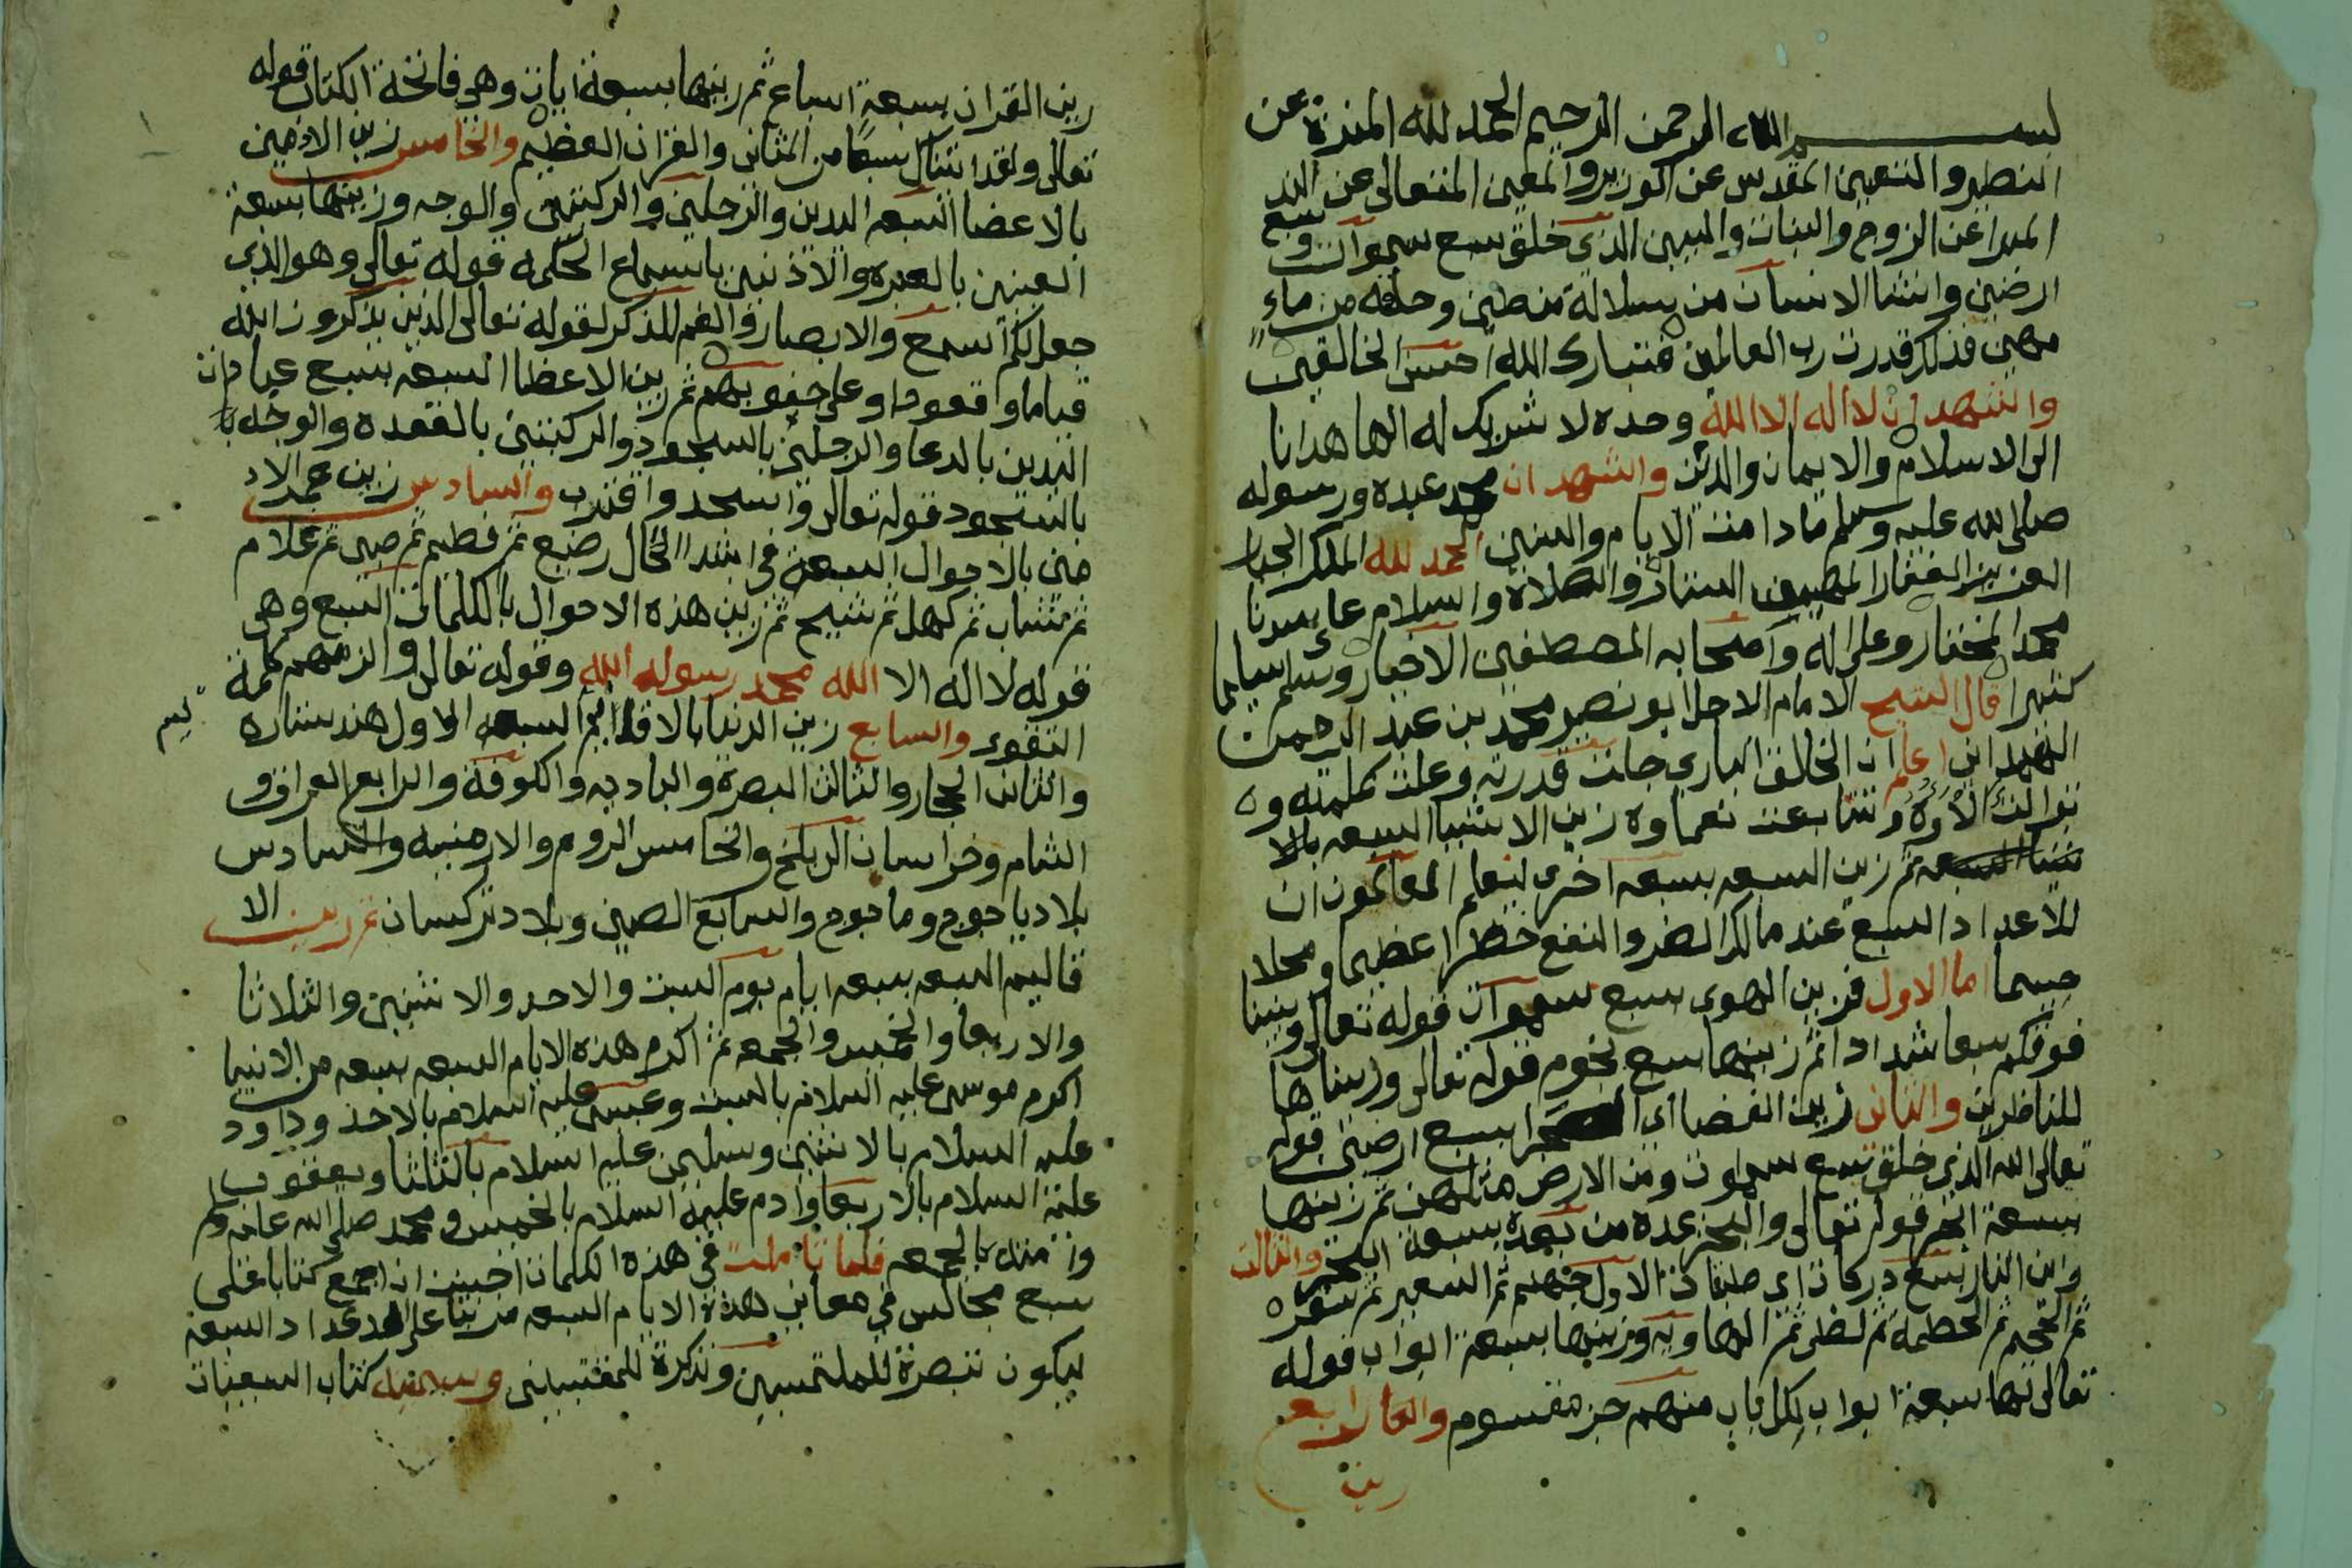 بسم الله الرحمن الرحيم الحمد لله المنزه عن
النصير والتعين المقدس عن الوزير والمعين المتعالى عن الند
المبرا عن الزوج والبنات والبنين الذي خلق سبع سموات و سبع
ارضين وانشا الانسان من سلالة من طين وخلقه من ماء
مهين فذلك قدرت رب العالمين فتبارك الله احسن الخالقين
واشهد ان لا اله الا الله وحده لا شريك له الها هدانا
الى الاسلام والايمان والدين واشهد ان محمد عبده ورسوله
صلى الله عليه وسلم ما دامت الايام والسنين الحمد لله الملك الجبار
العزيز الغفار المهيمن الستار والصلاة والسلام على سيدنا
محمد المختار وعلى اله واصحابه المصطفين الاخيار وسلم تسليما
كثيرا قال الشيخ الامام الاجل ابو نصير محمد بن عبد الرحمن
الهمداني اعلم ان الخالق الباري جلت قدرته وعلت كلمته و
توالت الاوه وتتابعت نعماوه زين الاشيا السبعه بالا
شيا السبعه ثم زين السبعه بسبعه اخرى ليعلم العالمون ان
للاعداد السبع عند مالك الضر والنفع خطرا عظيما ومحلا
جسيما اما الاول فزين الهوى بسبع سموات قوله تعالى وبنينا
فوقكم سبعا شدادا ثم زينها بسبع نجوم قوله تعالى وزيناها
للناظرين والثاني زين الفضا اي الصحرا بسبع ارضين قوله
تعالى الله الذي خلق سبع سموات ومن الارض مثلهن ثم زينها
بسبعة ابحر قوله تعالى والبحر يمده من بعده سبعة ابحر والثالث
زين النار بسبع دركات اي طبقات الاول جهنم ثم السعير ثم سقره
ثم الجحيم ثم الحطمة ثم لظى ثم الهاويه وزينها بسبعة ابواب قوله
تعالى لها سبعة ابواب لكل باب منهم جز مقسوم والرابع
زين
زين القران بسبعة اسباع ثم زينها بسبعة ايات وهي فاتحة الكتاب قوله
تعالى ولقد اتيناك سبعا من المثاني والقران العظيم والخامس زين الادمين
بالاعضا السبعه اليدين والرجلين والركبتين والوجه وزينها بسبعة
العينين بالعبره والاذنين باسماع الحكمه قوله تعالى وهو الذي
جعل لكم السمع والابصار والفم للذكر لقوله تعالى الذين يذكرون الله
قياما وقعودا وعلى جنوبهم ثم زين الاعضا السبعه بسبع عبادات
اليدين بالدعا والرجلين بالسجود والركبتين بالقعده والوجه با
بالسجود قوله تعالى واسجد واقترب والسادس زين عمر الاد
مين بالاحوال السبعة في ابتدا الحال رضيع ثم فطيم ثم صبي ثم غلام
ثم شاب ثم كهل ثم شيخ ثم زين هذه الاحوال بالكلمات السبع وهي
قوله لا اله الا الله محمد رسول الله وقوله تعالى والزمهم كلمة
التقوى والسابع زين الدنيا بالاقاليم السبعه الاول هندستاره
والثاني الحجاز والثالث البصرة والباديه والكوفة والرابع العراق و
الشام وخراسان الى بلخ والخامس الروم والارمنيه والسادس
بلاد ياجوج وماجوج والسابع الصين وبلاد تركسان ثم زين الا
قاليم السبعه بسبعه ايام يوم السبت والاحد والاثنين والثلاثا
والاربعا والخميس والجمعه ثم اكرم هذه الايام السبعه بسبعه من الانبيا
اكرم موسى عليه السلام بالسبت وعيسى عليه السلام بالاحد وداود
عليه السلام بالاثنين وسليمن عليه السلام بالثلثا ويعقوب
عليه السلام بالاربعا وادم عليه السلام بالخميس ومحمد صلى الله عليه وسلم
وامته بالجمعه فلما تاملت في هذه الكلمات احببت ان اجمع كتابا على
سبع مجالس في معاني هذه الايام السبعه مرتبا على اعداد السبعة
ليكون تبصرة للملتمسين وتذكرة للمقتبسين وسميته كتاب السبعيات